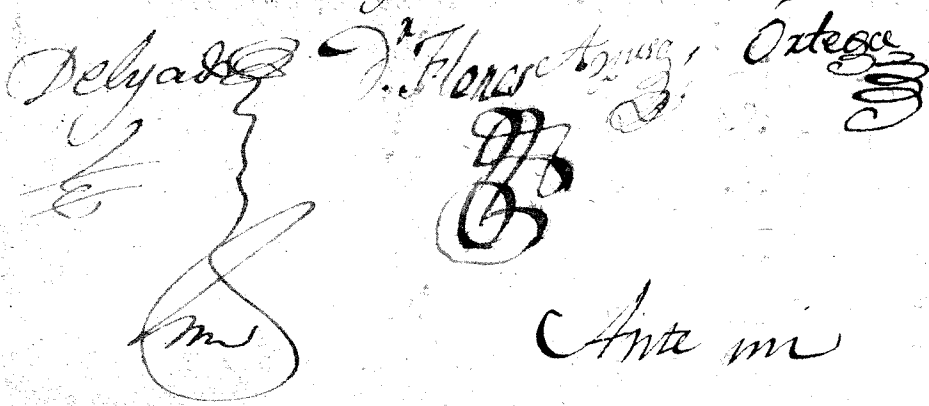 Delgado Dr. Flores Ortega
Ante mi